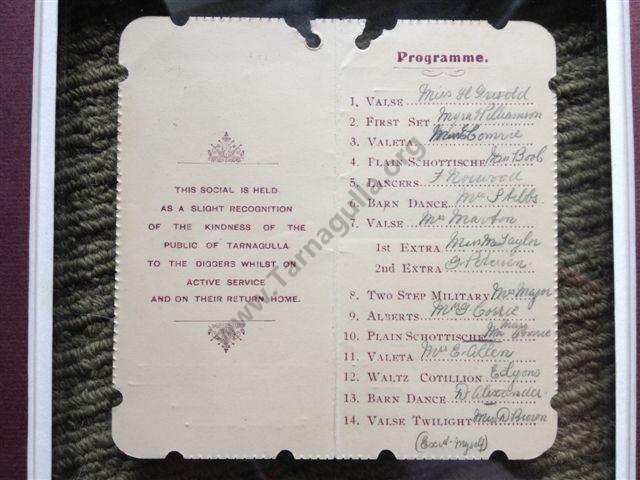 THIS SOCIAL IS HELD
AS A SLIGHT RECOGNITION
OF THE KINDNESS OF THE
PUBLIC OF TARNAGULLA
TO THE DIGGERS WHILST ON
ACTIVE SERVICE
AND ON THEIR RETURN HOME.
Programme.
1. VALSE Miss H Griwold
2. FIRST SET Myra Williamson
3. VALETA Comrie
4. PLAIN SCHOTTISCHE Mrs Bool
5. LANCERS F Norwood
6. BARN DANCE Mrs Stibbs
7. VALSE Mrs Marton
1ST EXTRA Miss M Taylor
2ND EXTRA Petersen
8. TWO STEP MILITARY Mrs Major
9. ALBERTS Mrs G Corrie
10. PLAIN SCHOTTISCHE Comrie
11. VALETA Mrs E. Allen
12. WALTZ COTILLION E Lyons
13. BARN DANCE D Alexander.
14. VALSE TWILIGHT Miss D Brown
www.Tarnagulla.org